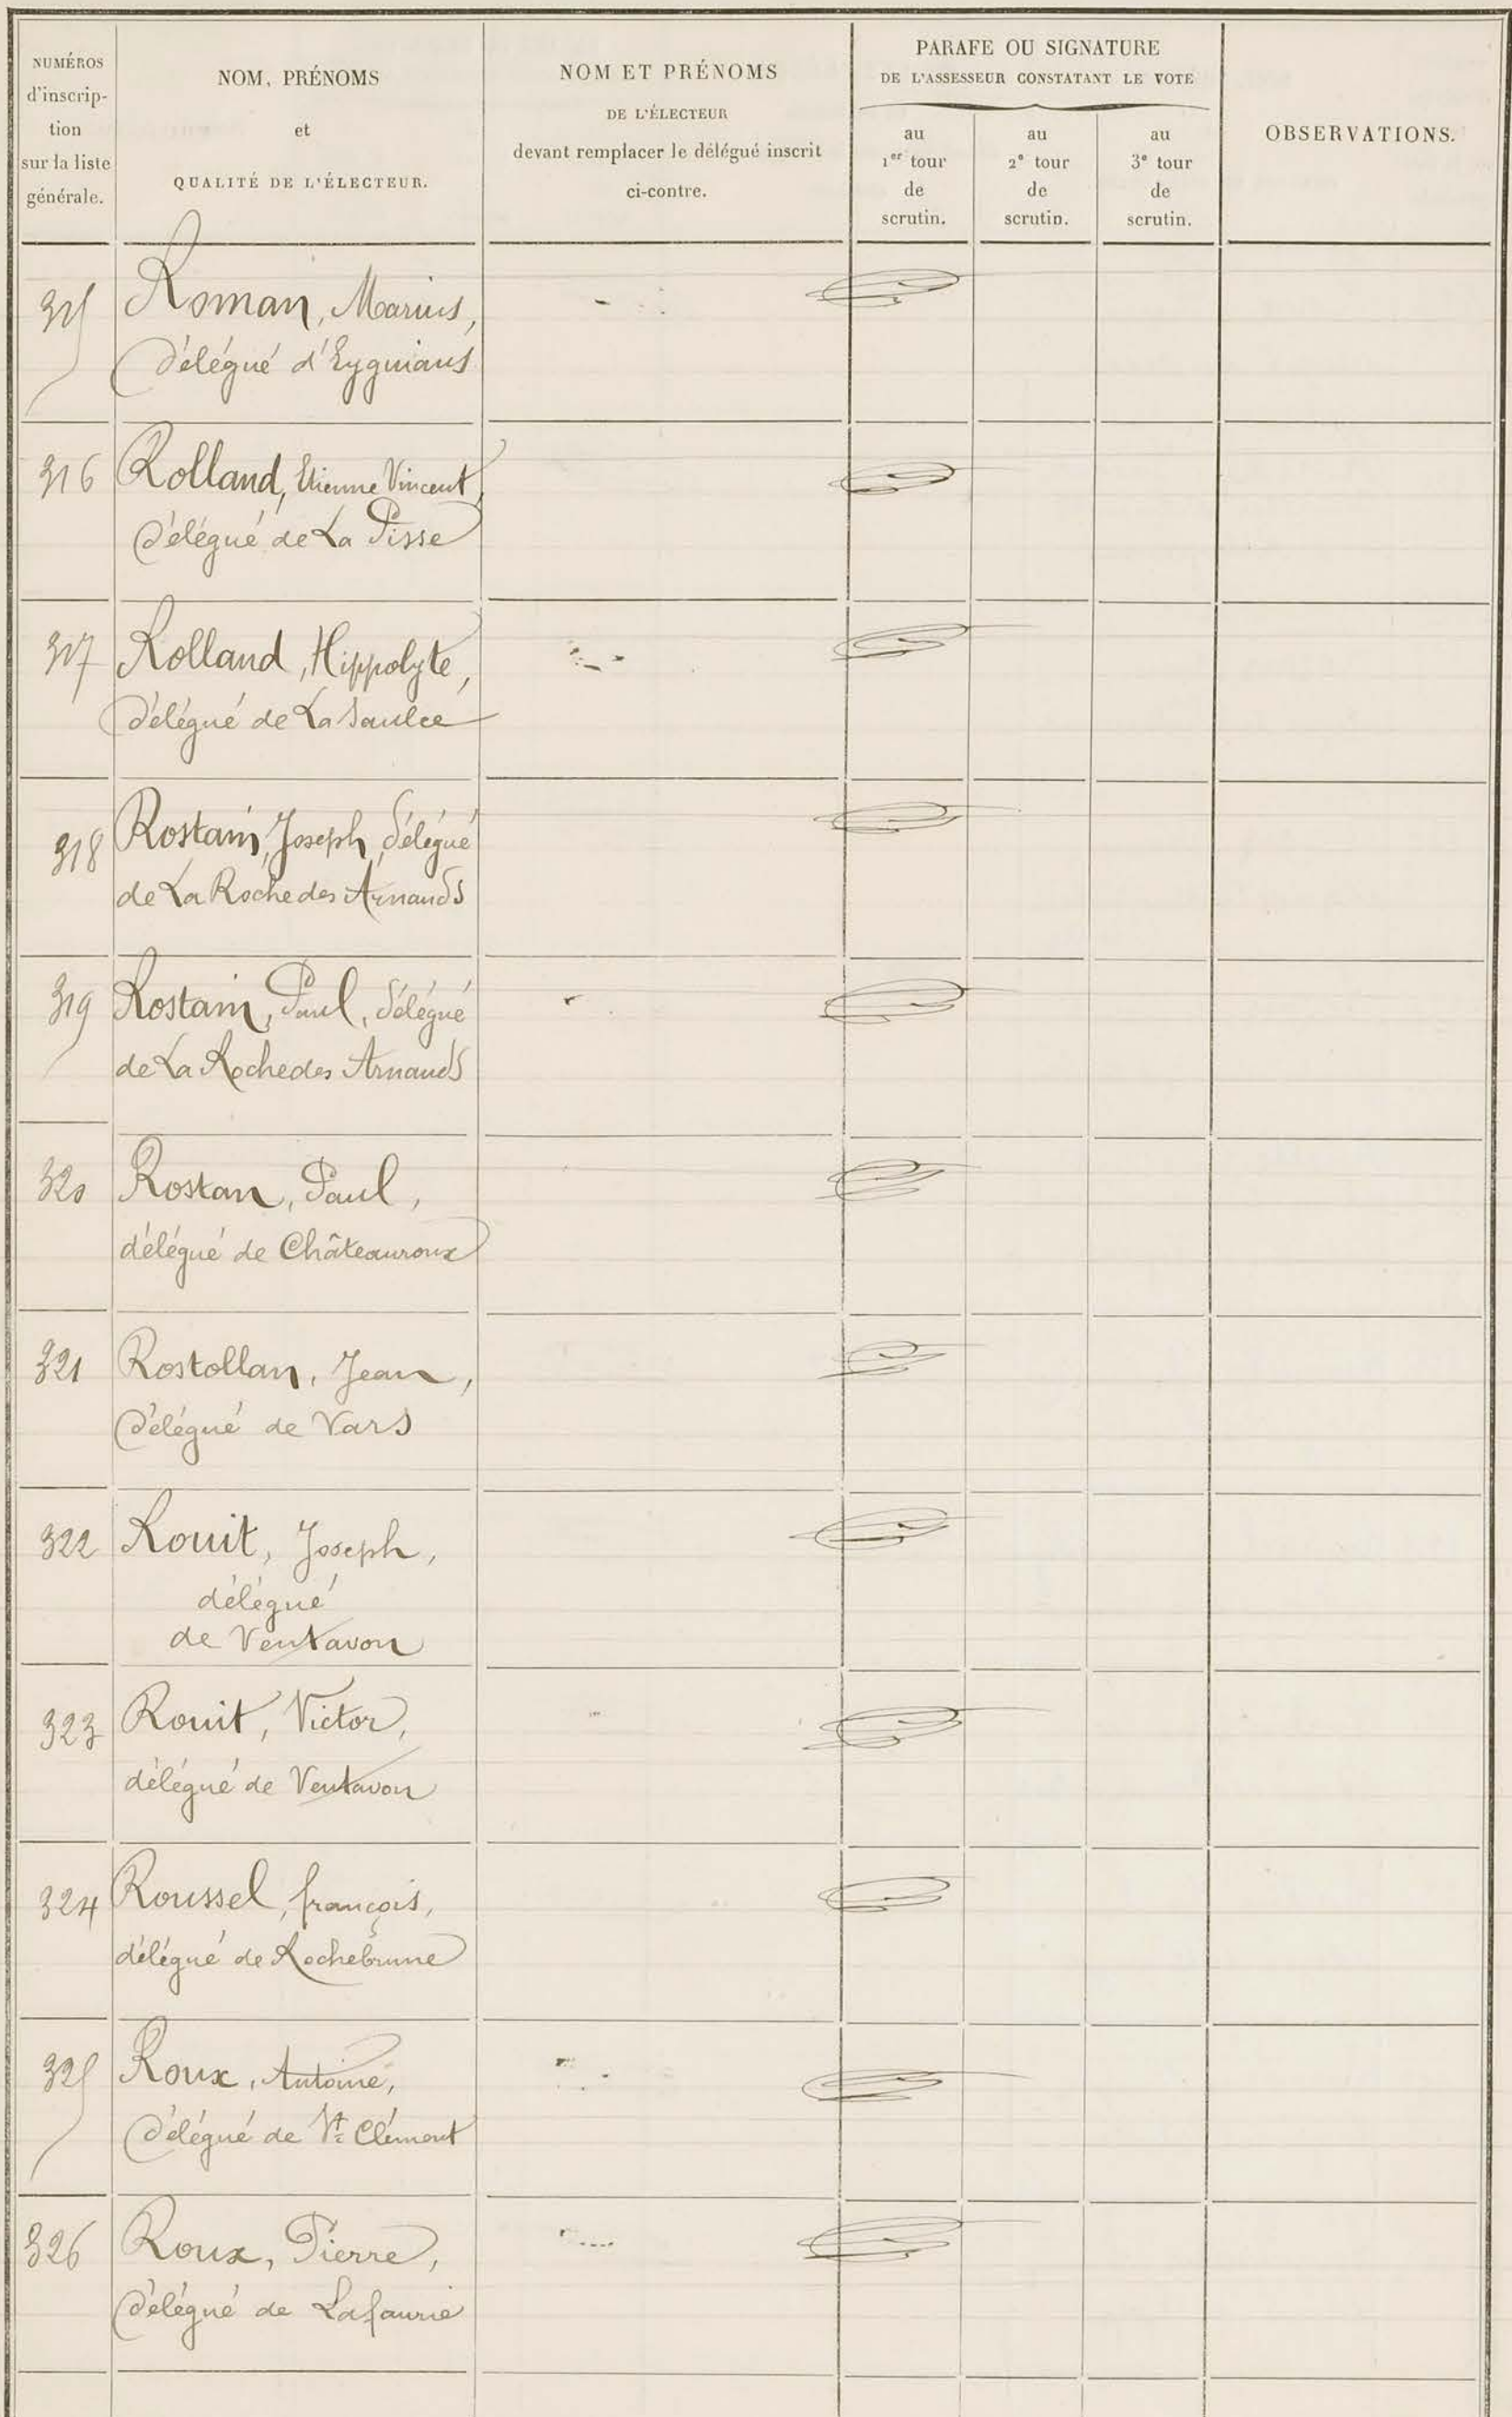 NUMÉROS
d'inscrip-
tion
sur la liste
générale.
NOM, PRÉNOMS
et
QUALITÉ DE L'ÉLECTEUR.
NOM ET PRÉNOMS
DE L'ÉLECTEUR
devant remplacer le délégué inscrit
ci-contre.
PARAFE OU SIGNATURE
DE L'ASSESSEUR CONSTATANT LE VOTE
au
1er tour
de
scrutin.
au
2e tour
de
scrutin.
au
3e tour
de
scrutin.
OBSERVATIONS.
315 Roman, Marius,
délégué d'Eyguians
316 Rolland, Etienne Vincent,
délégué de La Pisse
317 Rolland, Hippolyte,
délégué de La Saulce
318 Rostain, Joseph, délégué
de La Roche des Arnauds
319 Rostain, Paul, délégué
de La Roche des Arnauds
320 Rostan, Paul,
délégué de Châteauroux
321 Rostollan, Jean,
délégué de Vars
322 Rouit, Joseph,
délégué
de Ventavon
323 Rouit, Victor,
délégué de Ventavon
324 Roussel, françois,
délégué de Rochebrune
325 Roux, Antoine,
délégué de St Clément
326 Roux, Pierre,
délégué de Lafaurie